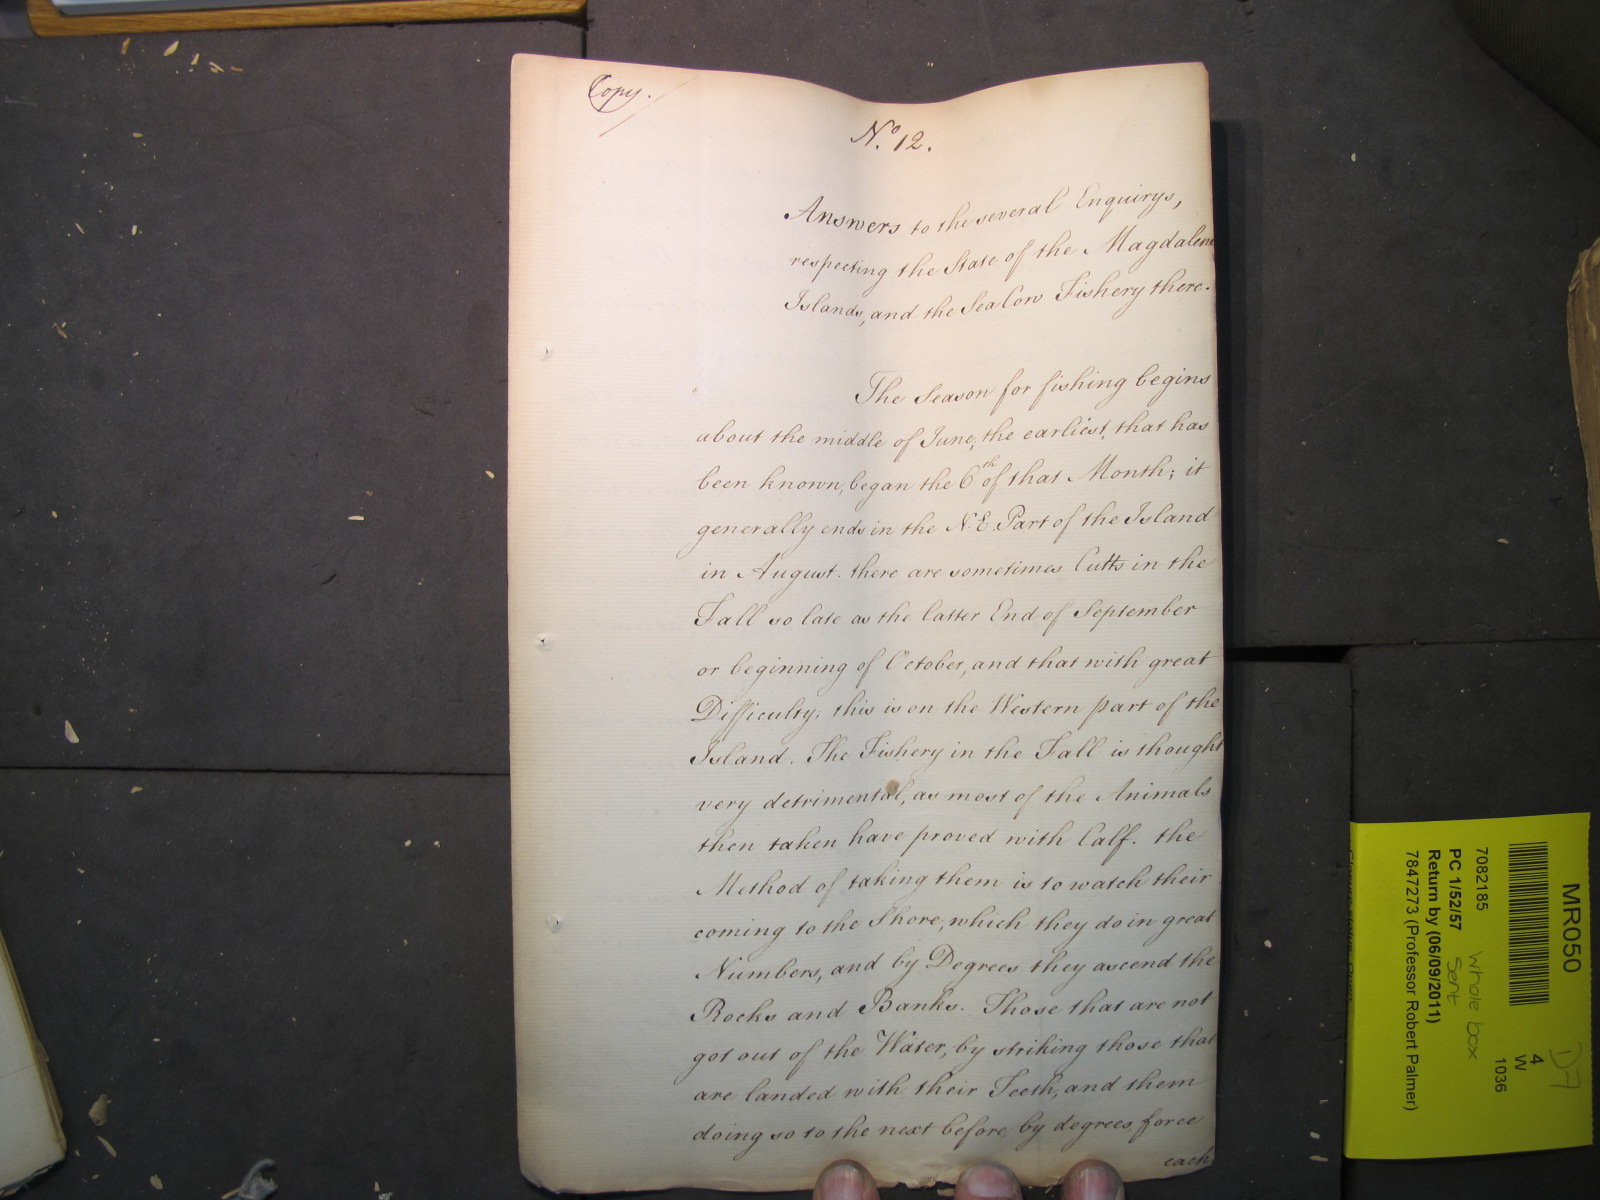 Copy.
No. 12.
Answers to the several Enquirys,
respecting the State of the Magdalene
Islands, and the Sea Cow Fishery there.
The Season for fishing begins
about the middle of June, the earliest, that has
been known, began the 6th of that Month; it
generally ends in the N.E Part of the Island
in August. there are sometimes Cutts in the
Fall so late as the latter End of September
or beginning of October, and that with great
Difficulty, this is on the Western part of the
Island. The Fishery in the Fall is thought
very detrimental, as most of the Animals
then taken have proved with Calf. the
Method of taking them is to watch their
coming to the Shore, which they do in great
Numbers, and by Degrees they ascend the
Rocks and Banks. Those that are not
got out of the Water, by striking those that
are landed with their Teeth, and them
doing so to the next before, by degrees, force
each
MR050
7082185
PC 1/52/57
Return by (06/09/2011)
7847273 (Professor Robert Palmer)
4
W
1036
Whole box
Sent
D7